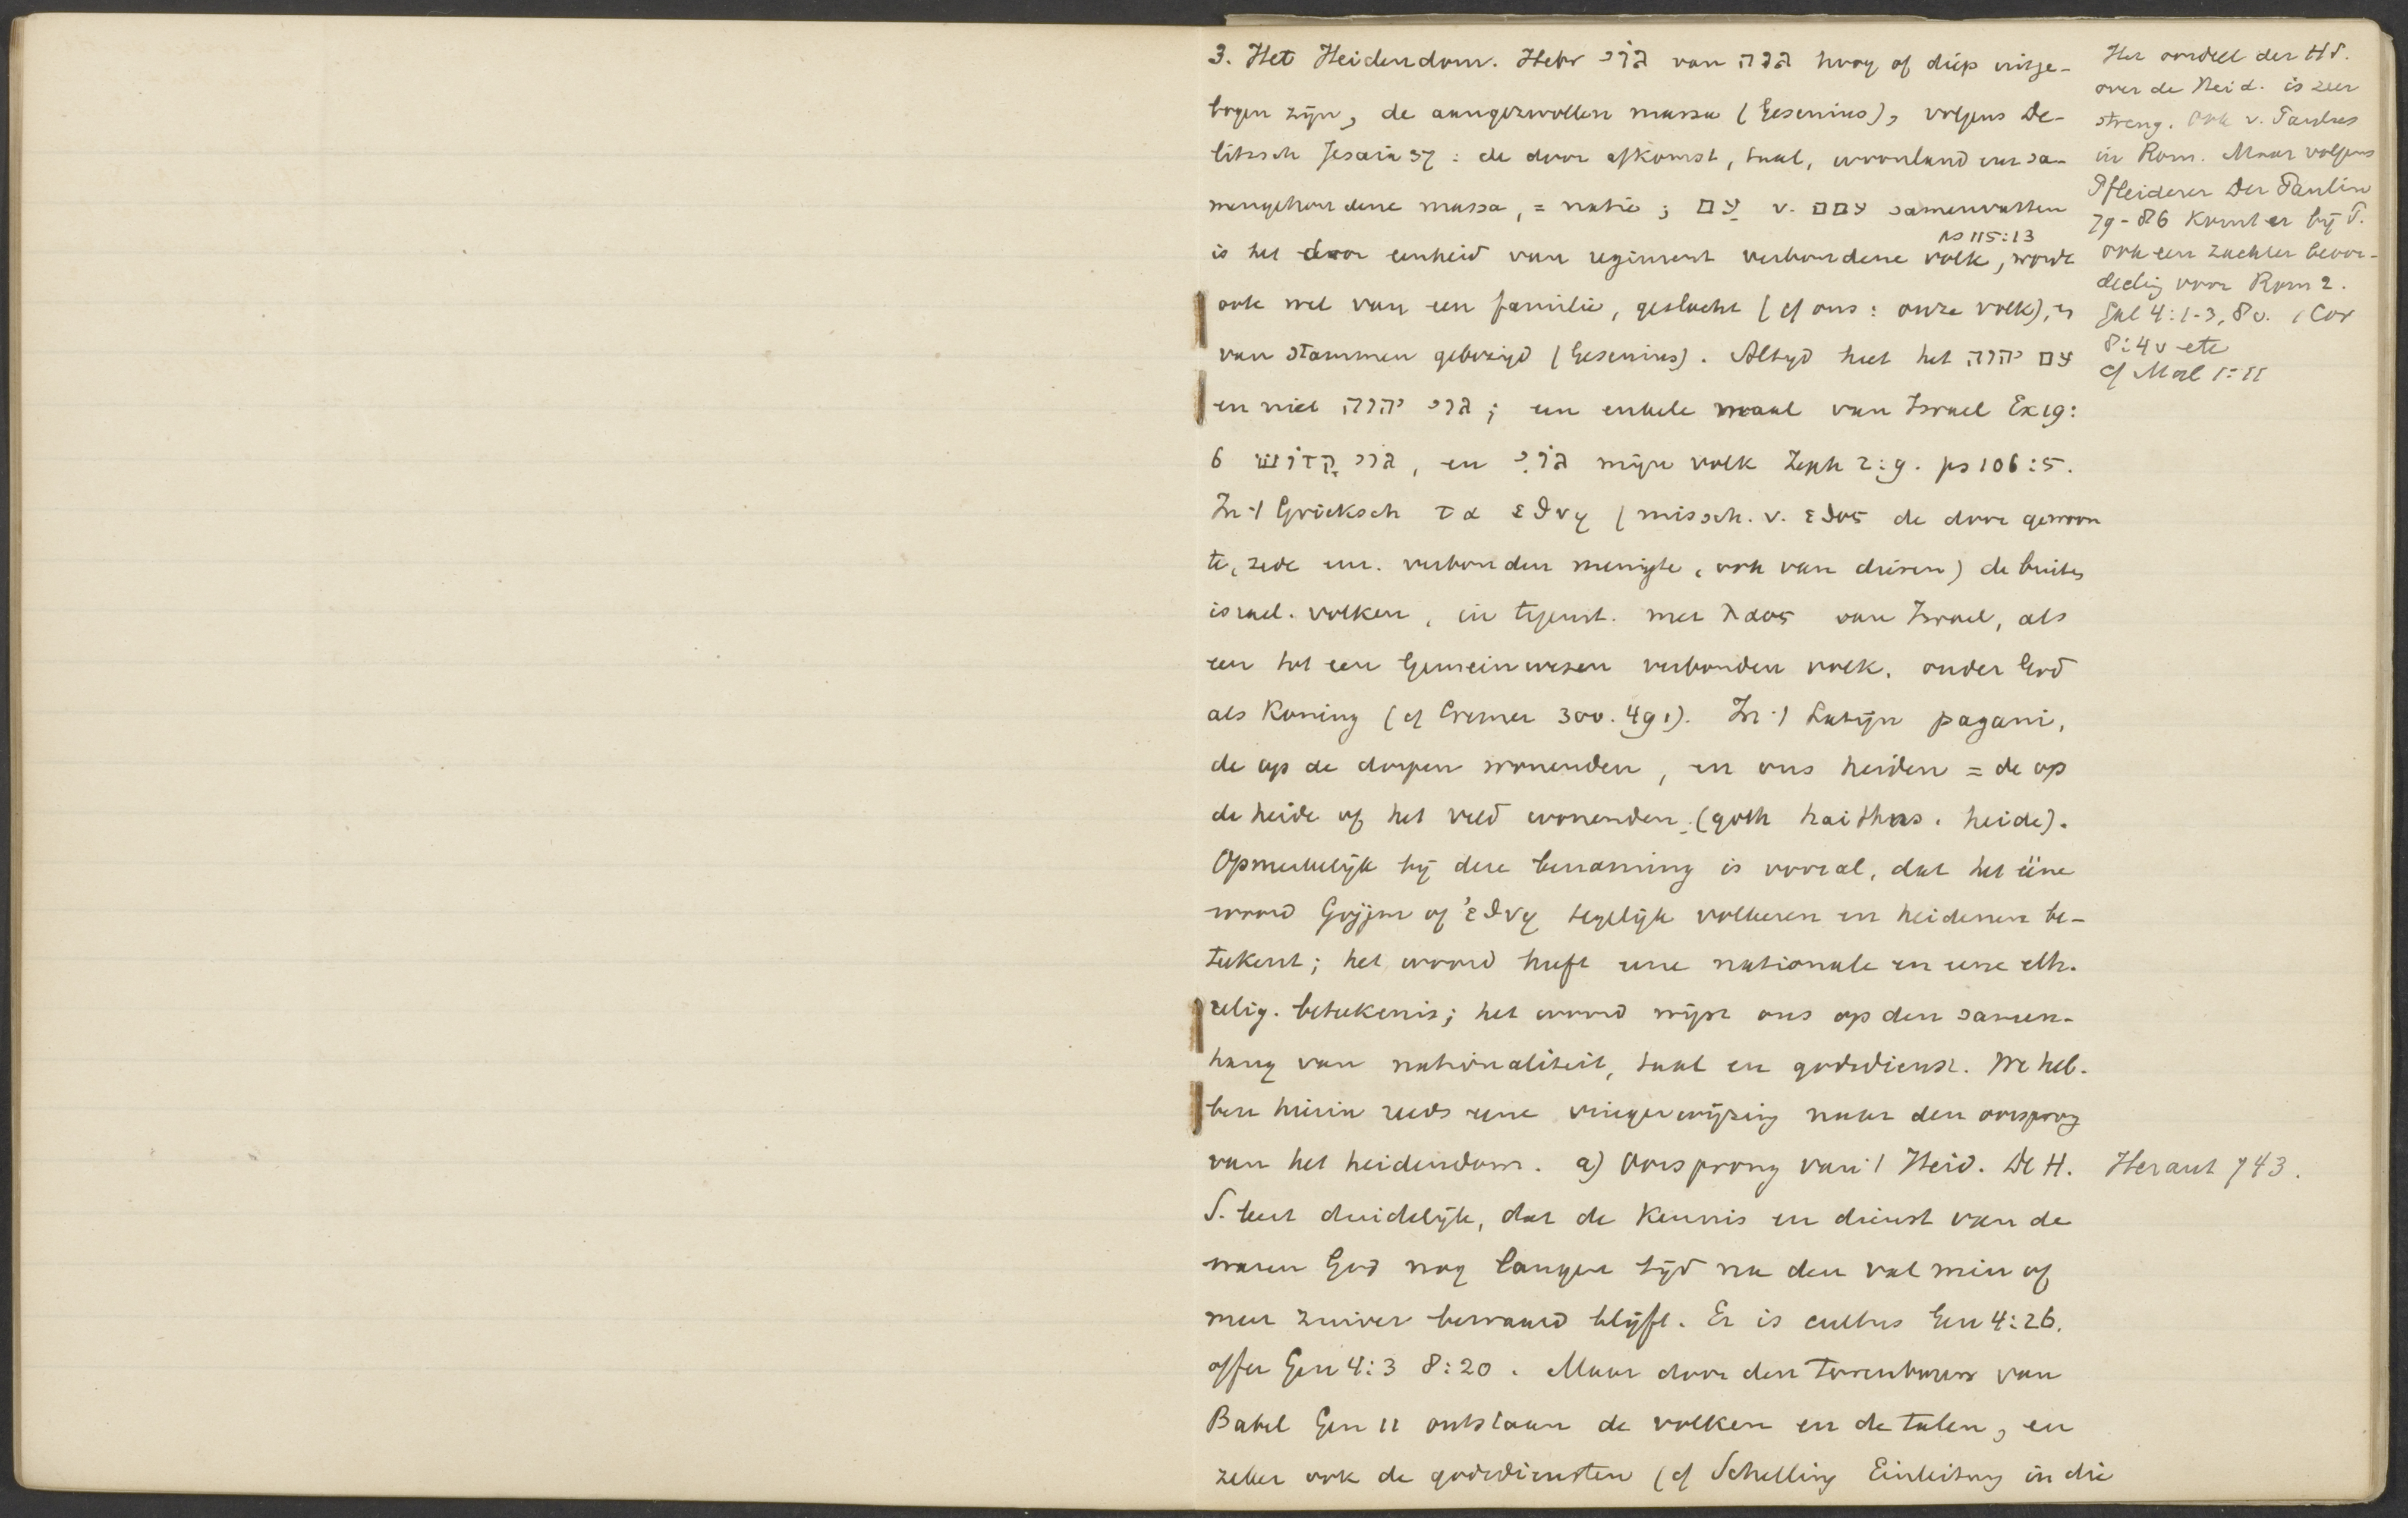 3. Het Heidendom. Hebr גּוֹי van גוה hoog of diep uitge-
bogen zijn, de aangezwollen massa (Gesenius), volgens De-
litzsch Jesaia 37: de door afkomst, taal, woonland enz sa-
mengehoudene massa, = natie; עַם v. עמם samenvatten
ps 115:13
is het door eenheid van regiment verbondene volk, wordt
ook wel van een familie, geslacht (cf ons: onze volk), en
van stammen gebezigd (Gesenius). Altijd heet het עם יהוה
en niet גוי יהוה; een enkele maal van Israel Ex 19:
6 גוי קָדוֹשׁ, en גּוֹיִ mijn volk Zeph 2:9. ps 106:5.
In 't Grieksch τα εθνη (missch. v. εθος de door gewoon
te, zede enz. verbonden menigte, ook van dieren) de buiten
israel. volken, in tegenst. met λαος van Israel, als
een tot een Gemeinwesen verbonden volk, onder God
als Koning (cf Cremer 300. 491). In 't Latijn pagani,
de op de dorpen wonenden, en ons heiden = de op
de heide of het veld wonenden (goth haithns. heide).
Opmerkelijk bij deze benaming is vooral, dat het ééne
woord Gojjim of ἐθνη tegelijk volkeren en heidenen be-
teekent; het woord heeft eene nationale en eene eth.
relig. beteekenis; het woord wijst ons op den samen-
hang van nationaliteit, taal en godsdienst. We heb-
ben hierin reeds eene vingerwijzing naar den oorsprong
van het heidendom. a) Oorsprong van 't Heid. De H.
S. leert duidelijk, dat de kennis en dienst van de
waren God nog langen tijd na den val min of
meer zuiver bewaard blijft. Er is cultus Gen 4:26.
offer Gen 4:3 8:20. Maar door den Torenbouw van
Babel Gen 11 ontstaan de volken en de talen, en
zeker ook de godsdiensten (cf Schelling Einleitung in die
Het oordeel der HS.
over de Heid. is zeer
streng. Ook v. Paulus
in Rom. Maar volgens
Pfleiderer Der Paulin
79-86 komt er bij P.
ook een zachter beoor-
deeling voor Rom 2.
Gal 4:1-3, 8v. 1 Cor
8:4v etc
cf Mal 1:11
Heraut 743.